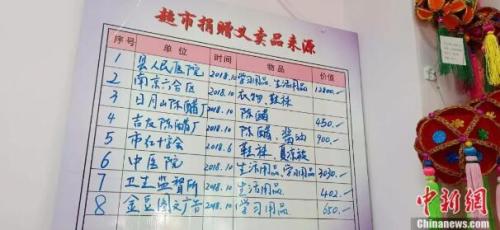 超市捐赠义卖品来源
序号 单位 时间 物品 价值
1 县人民医院 2018.10 学习用品、生活用品 12800.-
2 南京六合区 2018.10 衣物、鞋袜
3 日月山陈醋厂 2018.10 陈醋 450.-
4 吉友陈醋厂 2018.10 陈醋、酱油 900.-
5 市红十字会 2018.6 鞋袜、夏凉被
6 中医院 2018.10 生活用品、学习用品 3030.-
7 卫生监督所 2018.10 生活用品 402.-
8 金豆图文广告 2018.10 学习用品 650.-
中新网
Chinanews.com